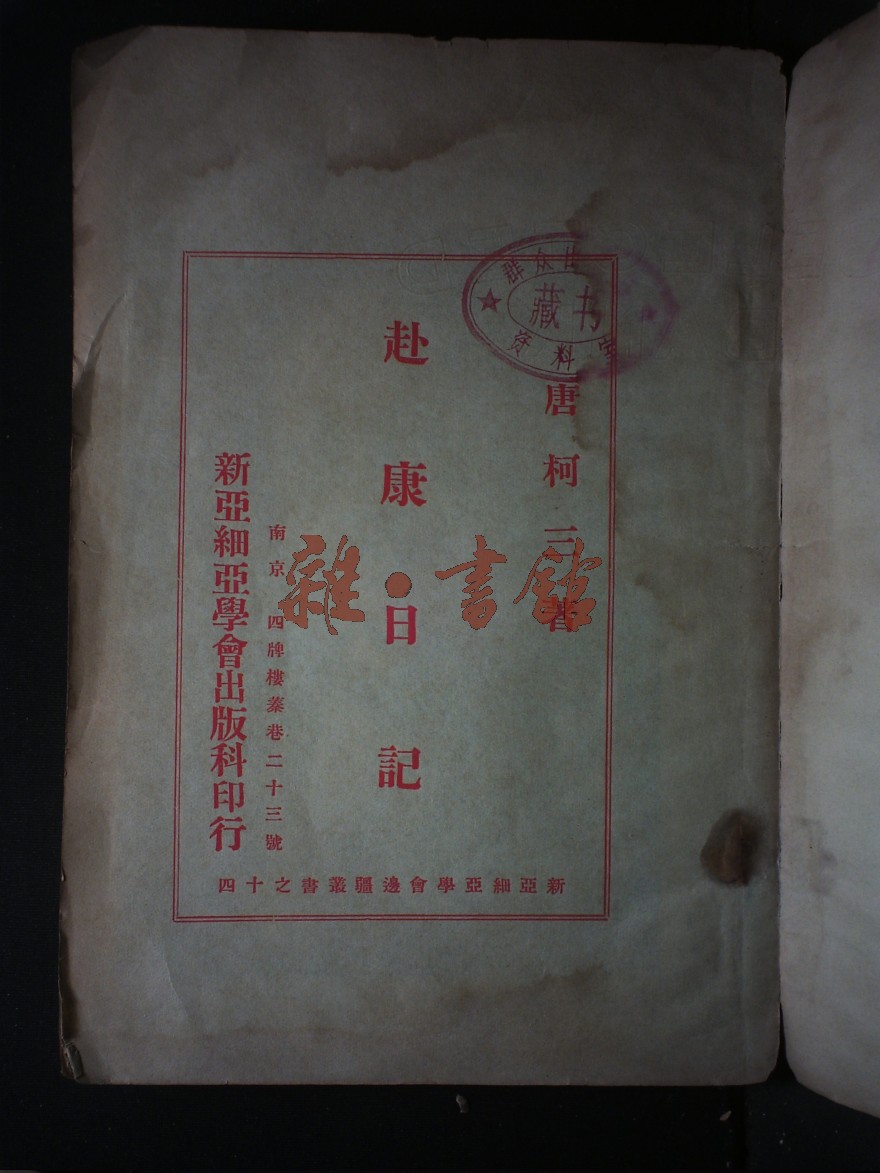 唐柯三著
赴康日記
南京 四牌樓蓁巷二十三號
新亞細亞學會出版科印行
新亞細亞學會邊疆叢書之十四
群众出
藏书
资料室
雜·書館